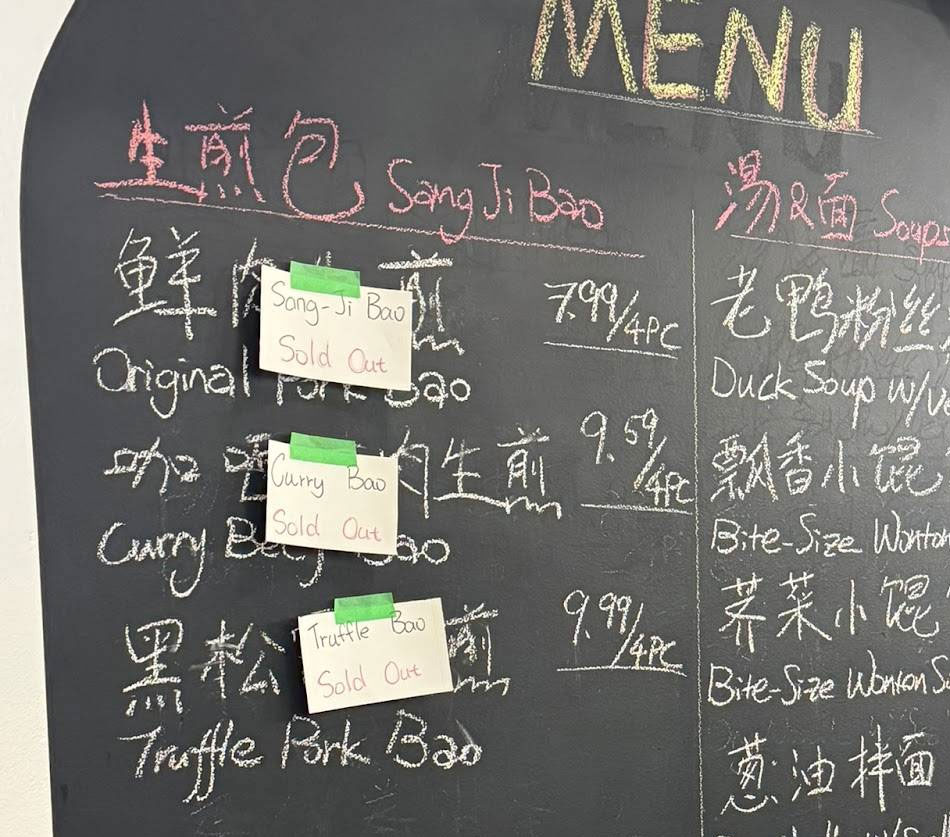 MENU
生煎包 Sang Ji Bao
鲜
煎
7.99/4PC
Sang-Ji Bao
Sold Out
Original Pork Bao
咖
肉生煎
9.59/4PC
Curry Bao
Sold Out
Curry
Bao
黑松
煎
9.99/4PC
Truffle Bao
Sold Out
Truffle Pork Bao
湯&面 Soups
老鸭粉丝
Duck Soup w/
飘香小馄
Bite-Size Wonton
荠菜小馄
Bite-Size Wonton
葱油拌面